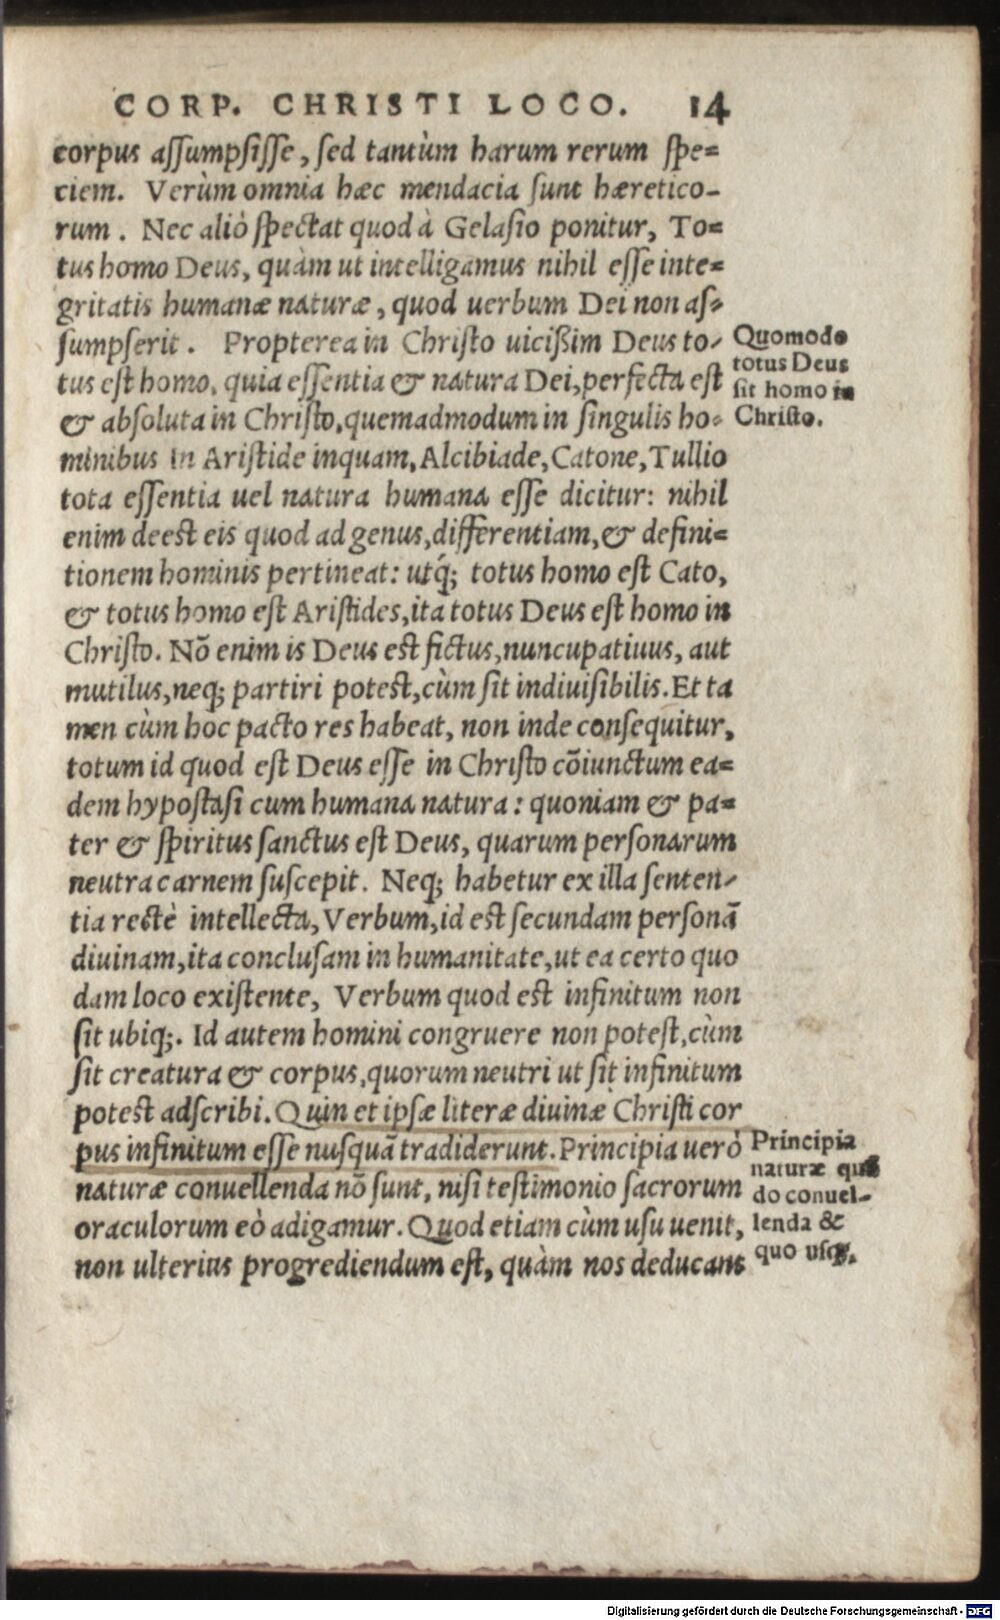 CORP. CHRISTI LOCO. 14
corpus assumpsisse, sed tantùm harum rerum spe=
ciem. Verùm omnia hæc mendacia sunt hæretico-
rum. Nec aliò spectat quod à Gelasio ponitur, To=
tus homo Deus, quàm ut intelligamus nihil esse inte=
gritatis humanæ naturæ, quod uerbum Dei non as=
sumpserit. Propterea in Christo uicißim Deus to=
tus est homo, quia essentia & natura Dei, perfecta est
& absoluta in Christo, quemadmodum in singulis ho=
minibus In Aristide inquam, Alcibiade, Catone, Tullio
tota essentia uel natura humana esse dicitur: nihil
enim deest eis quod ad genus, differentiam, & defini=
tionem hominis pertineat: utq́; totus homo est Cato,
& totus homo est Aristides, ita totus Deus est homo in
Christo. Nō enim is Deus est fictus, nuncupatiuus, aut
mutilus, neq; partiri potest, cùm sit indiuisibilis. Et ta
men cùm hoc pacto res habeat, non inde consequitur,
totum id quod est Deus esse in Christo cōiunctum ea=
dem hypostasi cum humana natura: quoniam & pa=
ter & spiritus sanctus est Deus, quarum personarum
neutra carnem suscepit. Neq; habetur ex illa senten=
tia rectè intellecta, Verbum, id est secundam personā
diuinam, ita conclusam in humanitate, ut ea certo quo
dam loco existente, Verbum quod est infinitum non
sit ubiq;. Id autem homini congruere non potest, cùm
sit creatura & corpus, quorum neutri ut sit infinitum
potest adscribi. Quin et ipsæ literæ diuinæ Christi cor
pus infinitum esse nusquā tradiderunt. Principia uerò
naturæ conuellenda nō sunt, nisi testimonio sacrorum
oraculorum eò adigamur. Quod etiam cùm usu uenit,
non ulterius progrediendum est, quàm nos deducant
Quomodo
totus Deus
sit homo in
Christo.
Principia
naturæ quō
do conuel-
lenda &
quo usq;.
Digitalisierung gefördert durch die Deutsche Forschungsgemeinschaft - DFG